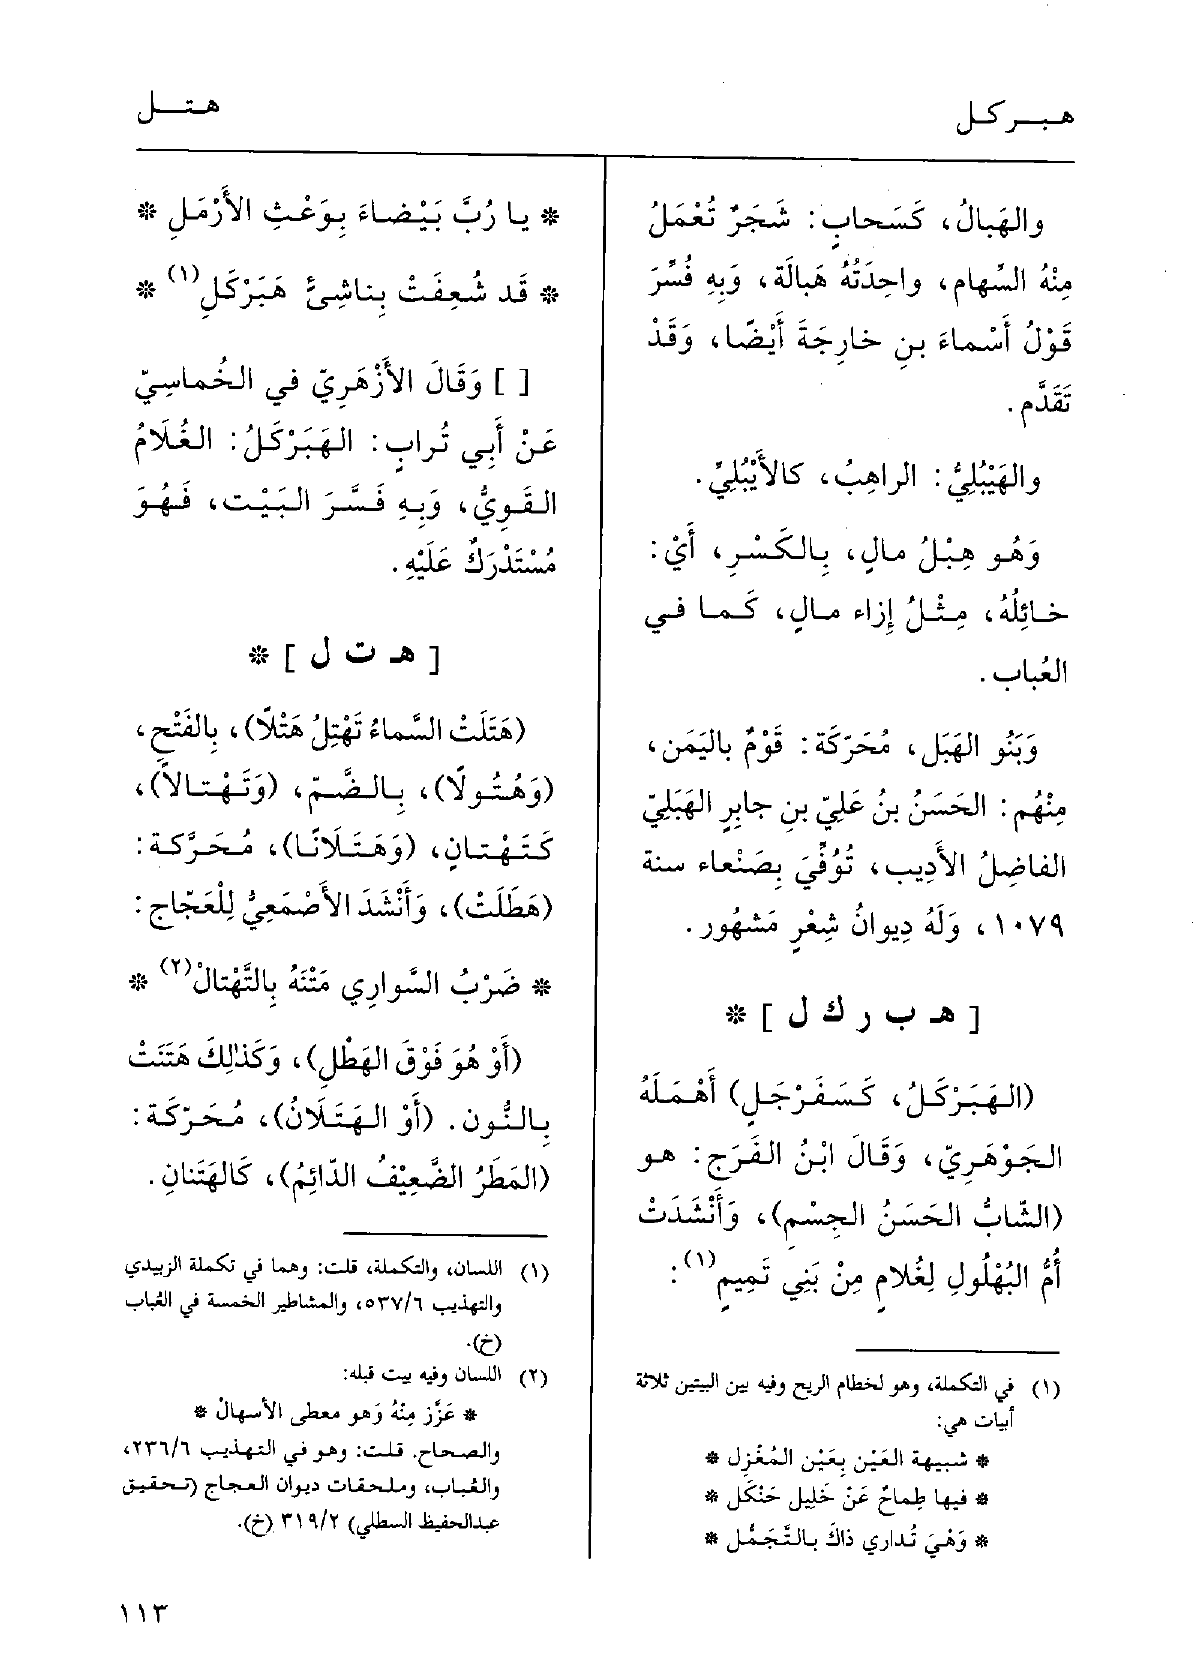 هبركل
هتل
والهَبالُ، كَسَحابٍ: شَجَرٌ تُعْمَلُ
مِنْهُ السِّهام، واحِدَتُهُ هَبالَة، وَبِهِ فُسِّرَ
قَوْلُ أَسْماءَ بنِ خارِجَةَ أَيْضًا، وَقَدْ
تَقَدَّم.
والهَيْبُلِيُّ: الراهِبُ، كالأَيْبُلِيِّ.
وَهُو هِبْلُ مالٍ، بِالكَسْرِ، أَيْ:
خائِلُهُ، مِثْلُ إِزاء مالٍ، كَما في
العُباب.
وَبَنُو الهَبَل، مُحَرّكَة: قَوْمٌ باليَمَن،
مِنْهُم: الحَسَنُ بنُ عَلِيّ بنِ جابِرٍ الهَبَلِيّ
الفاضِلُ الأَدِيب، تُوُفِّيَ بِصَنْعاء سنة
١٠٧٩، وَلَهُ دِيوانُ شِعْرٍ مَشهُور.
[ هـ ب ر ك ل ] *
(الهَبَرْكَلُ، كَسَفَرْجَلٍ) أَهْمَلَهُ
الجَوْهَرِيّ، وَقَالَ ابْنُ الفَرَج: هو
(الشّابُّ الحَسَنُ الجِسْمِ)، وَأَنْشَدَتْ
أُمُّ البُهْلُولِ لِغُلامٍ مِنْ بَنِي تَمِيمٍ(١):
(١) في التكملة، وهو لخطام الريح وفيه بين البيتين ثلاثة
أبيات هي:
* شبيهة العَيْنِ بِعَيْنِ المُغْزِل *
* فيها طِماحٌ عَنْ خَلِيل حَنْكَل *
* وَهْيَ تُدارِي ذاكَ بالتَّجَمُّل *
* يا رُبَّ بَيْضاءَ بِوَعْثِ الأَرْمَلِ *
* قَد شُعِفَتْ بِناشِئٍ هَبَرْكَلِ(١) *
[ ] وَقَالَ الأَزْهَرِيّ في الخُماسِيّ
عَنْ أَبِي تُرابٍ: الهَبَرْكَلُ: الغُلَامُ
القَوِيُّ، وَبِهِ فَسَّرَ البَيْت، فَهُوَ
مُسْتَدْرَكٌ عَلَيْهِ.
[ هـ ت ل ] *
(هَتَلَتْ السَّماءُ تَهْتِلُ هَتْلًا)، بِالفَتْحِ،
(وَهُتُولًا)، بِالضَّمّ، (وَتَهْتالاً)،
كَتَهْتانٍ، (وَهَتَلَانًا)، مُحَرَّكة:
(هَطَلَتْ)، وَأَنْشَدَ الأَصْمَعِيُّ لِلْعَجّاج:
* ضَرْبُ السَّوارِي مَتْنَهُ بِالتَّهْتالْ(٢) *
(أَوْ هُوَ فَوْقَ الهَطْلِ)، وَكَذٰلِكَ هَتَنَتْ
بِالنُّون. (أَوْ الهَتَلَانُ)، مُحَرّكَة:
(المَطَرُ الضَّعِيْفُ الدّائِمُ)، كَالهَتَنانِ.
(١) اللسان، والتكملة، قلت: وهما في تكملة الزبيدي
والتهذيب ٥٣٧/٦، والمشاطير الخمسة في العُباب
(خ).
(٢) اللسان وفيه بيت قبله:
* عَزَّز مِنْهُ وَهو معطى الأسهالْ *
والصحاح. قلت: وهو في التهذيب ٢٣٦/٦،
والعُباب، وملحقات ديوان العجاج (تحقيق
عبدالحفيظ السطلي) ٣١٩/٢ (خ).
١١٣